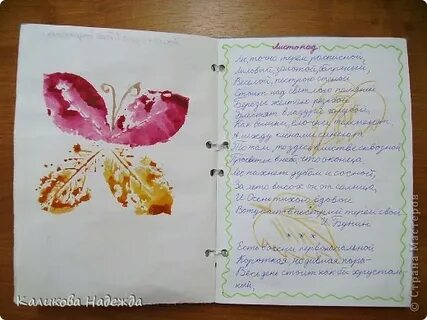 Листопад
Лес, точно терем расписной,
Лиловый, золотой, багряный,
Веселой, пестрою стеной
Стоит над светлою поляной
Березы желтою резьбой
Блестят в лазури голубой,
Как вышки, ёлочки темнеют,
А между кленами синеют
То там, то здесь в листве сквозной
Просветы в небо, что оконца.
Лес пахнет дубом и сосной,
За лето высох он от солнца,
И Осень тихою вдовой
Вступает в пестрый терем свой
И. Бунин
* * *
Есть в осени первоначальной
Короткая но дивная пора-
Весь день стоит как бы хрустальный,
Каликова Надежда
© Страна Мастеров